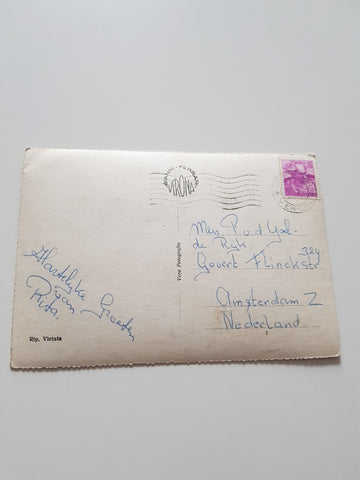 Hartelijke Groeten
Rian
Rita.
Rip. Vietata
Vera Fotografia
VERONA
Mevr. P. v. d. Gal-
de Rijk.
Govert Flinckstr. 324
Amsterdam Z
Nederland.